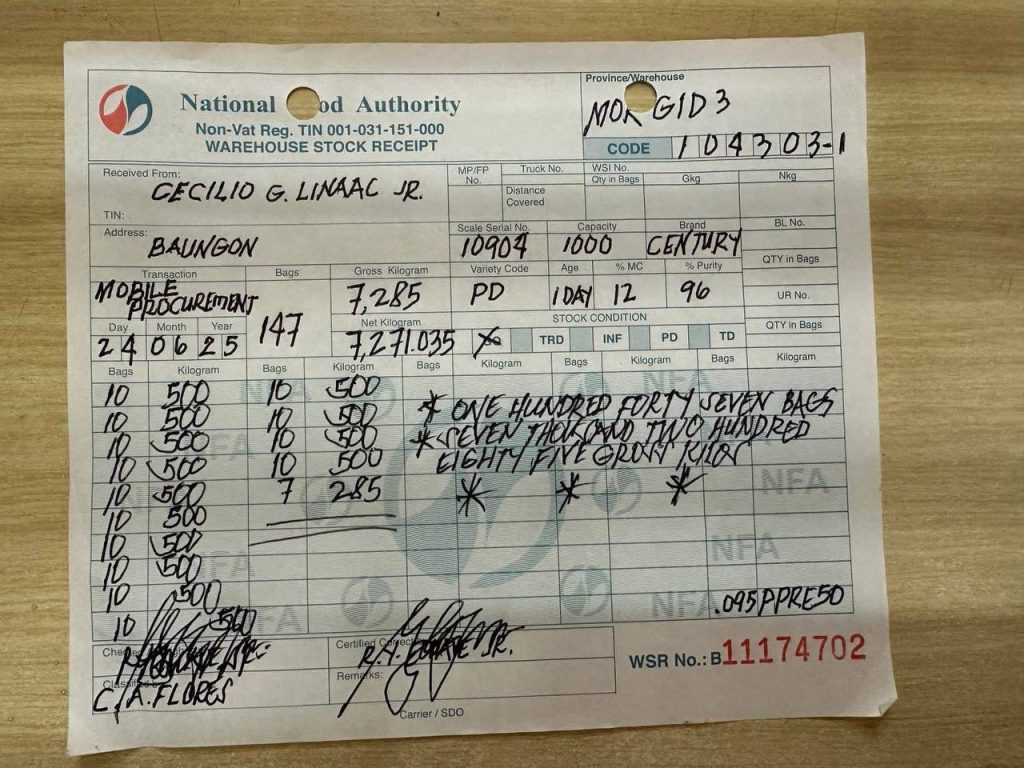 Province/Warehouse
National od Authority
MOR GID 3
Non-Vat Reg. TIN 001-031-151-000
WAREHOUSE STOCK RECEIPT
CODE 104303-1
Received From: CECILIO G. LINAAC JR.
TIN:
MP/FP No. Truck No. WSI No.
Distance Covered Qty in Bags Gkg Nkg
Address: BAUNGON
Scale Serial No. Capacity Brand BL No.
10904 1000 CENTURY
Transaction Bags Gross Kilogram Variety Code Age % MC % Purity QTY in Bags
MOBILE PROCUREMENT 147 7,285 PD 1 DAY 12 96 UR No.
Day Month Year Net Kilogram STOCK CONDITION QTY in Bags
24 06 25 7,271.035 TRD INF PD TD
Bags Kilogram Bags Kilogram Bags Kilogram Bags Kilogram Bags Kilogram
10 500 10 500
10 500 10 500 * ONE HUNDRED FORTY SEVEN BAGS
10 500 10 500 * SEVEN THOUSAND TWO HUNDRED
10 500 10 500 EIGHTY FIVE GROSS KILOS
10 500 7 285 * * *
10 500
10 500
10 500
10 500
10 500
.095PPRE50
NFA NFA NFA NFA NFA NFA NFA NFA
Certified Correct
JR.
WSR No.: B11174702
Remarks:
C. A. FLORES
Carrier / SDO